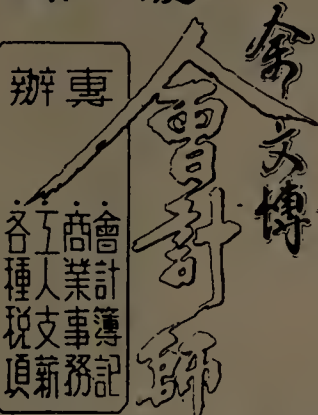 余文博
會計師
專辦
會計簿記
商業事務
工人支薪
各種税項